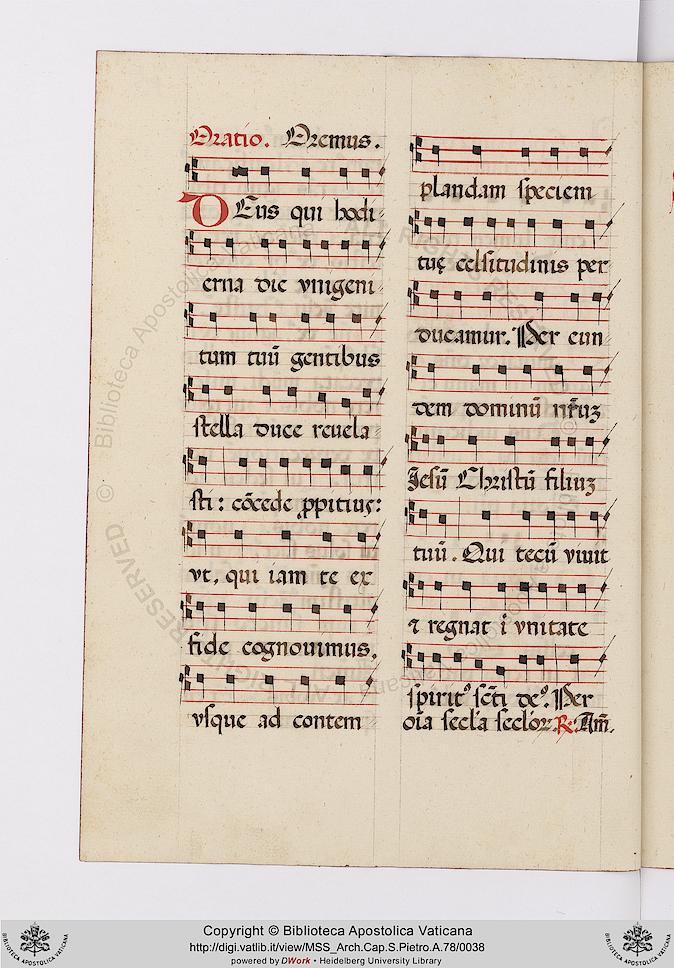 Oratio. Oremus.
DEus qui hodi
erna die vnigeni
tum tuū gentibus
stella duce reuela
sti: cōcede ꝓpitius:
vt, qui iam te ex
fide cognouimus,
vsque ad contem
plandam speciem
tuę celsitudinis per
ducamur. Per eun
dem dominū nr̄uꝫ
Jesū Christū filiuꝫ
tuū. Qui tecū viuit
⁊ regnat ī vnitate
spiritꝰ sc̄ti deꝰ. Per
oīa sec̄la sec̄loꝝ. ℟. Am̄.
Copyright © Biblioteca Apostolica Vaticana
http://digi.vatlib.it/view/MSS_Arch.Cap.S.Pietro.A.78/0038
powered by DWork • Heidelberg University Library
BIBLIOTECA APOSTOLICA VATICANA
BIBLIOTECA APOSTOLICA VATICANA